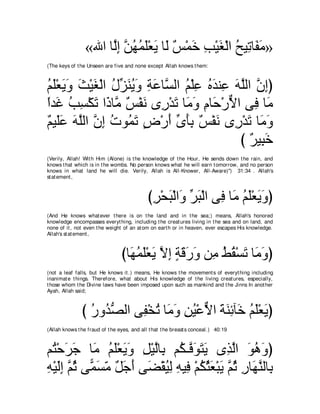 «مَفَاتِيحُ الْغَيْبِ خَمْسٌ لَا يَعْلَمُهُنَّ إِلَّا الله»
(The keys of the Unseen are five and none except Allah knows them:
(إِنَّ اللَّهَ عِندَهُ عِلْمُ السَّاعَةِ وَيُنَزِّلُ الْغَيْثَ وَيَعْلَمُ
مَا فِى الاٌّرْحَامِ وَمَا تَدْرِى نَفْسٌ مَّاذَا تَكْسِبُ غَداً
وَمَا تَدْرِى نَفْسٌ بِأَىِّ أَرْضٍ تَمُوتُ إِنَّ اللَّهَ عَلَيمٌ
خَبِيرٌ )
(Verily, Allah! With Him (Alone) is the knowledge of the Hour, He sends down the rain, and
knows that which is in the wombs. No person knows what he will earn tomorrow, and no person
knows in what land he will die. Verily, Allah is All-Knower, All-Aware)") 31:34 . Allah's
statement,
(وَيَعْلَمُ مَا فِى الْبَرِّ وَالْبَحْرِ)
(And He knows whatever there is on the land and in the sea;) means, Allah's honored
knowledge encompasses everything, including the creatures living in the sea and on land, and
none of it, not even the weight of an atom on earth or in heaven, ever escapes His knowledge.
Allah's statement,
(وَمَا تَسْقُطُ مِن وَرَقَةٍ إِلاَّ يَعْلَمُهَا)
(not a leaf falls, but He knows it.) means, He knows the movements of everything including
inanimate things. Therefore, what about His knowledge of the living creatures, especially,
those whom the Divine laws have been imposed upon such as mankind and the Jinns In another
Ayah, Allah said;
(يَعْلَمُ خَآئِنَةَ الاٌّعْيُنِ وَمَا تُخْفِى الصُّدُورُ )
(Allah knows the fraud of the eyes, and all that the breasts conceal.) 40:19
(وَهُوَ الَّذِى يَتَوَفَّـكُم بِالَّيْلِ وَيَعْلَمُ مَا جَرَحْتُم
بِالنَّهَارِ ثُمَّ يَبْعَثُكُمْ فِيهِ لِيُقْضَى أَجَلٌ مّسَمًّى ثُمَّ إِلَيْهِ